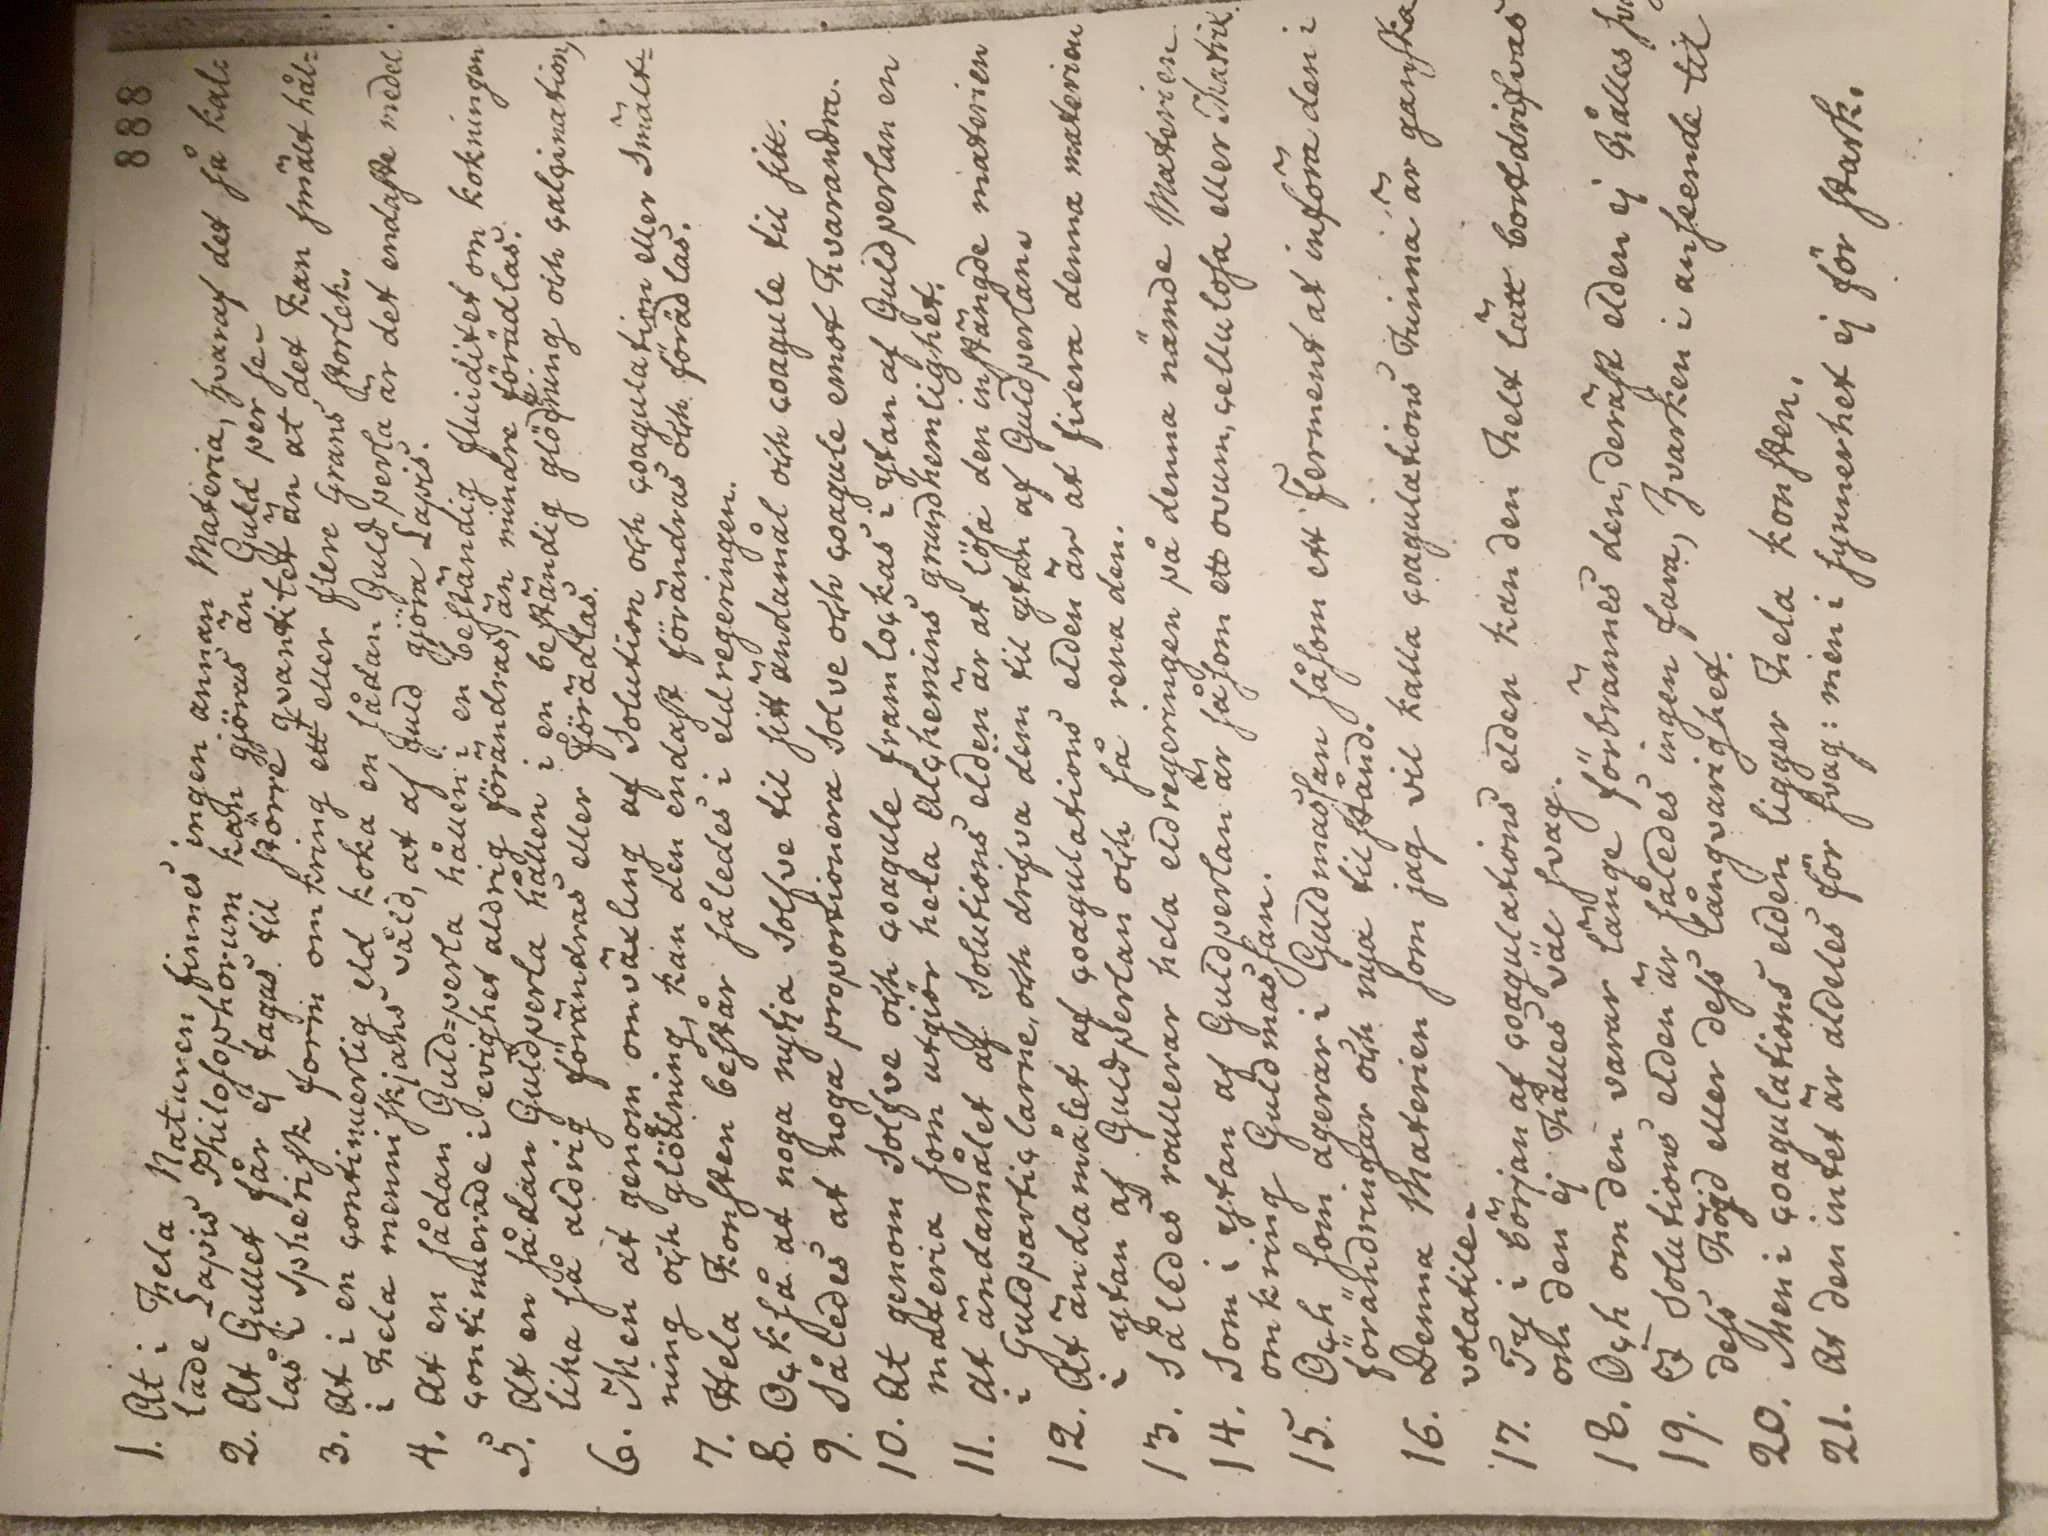 888
1. At i hela Naturen finnes ingen annan Materia, hvaraf det så kal=
lade Lapis Philosophorum kan gjöras än Guld per se.
2. At Gullet får ej tagas til större qvantitet än at det kan smält hål=
las i spherisk form omkring ett eller flere Grans storlek.
3. At i en continuerlig eld koka en sådan Guldperla är det endaste medel
i hela menniskjans våld, at af Guld gjöra Lapis.
4. At en sådan Guld=perla hållen i en beständig fluiditet om kokningen
continuerade i evighet aldrig förändras, än mindre förädlas.
5. At en sådan Guldperla hållen i en beständig glödgning och calcination,
lika så aldrig förändras eller förädlas.
6. Men at genom omväxling af Solution och coagulation eller Smält=
ning och glödgning, kan den endast förändras och förädlas.
7. Hela Konsten består således i eldregeringen.
8. Ock så at noga nytja Solve til sitt ändamål och coagule til sitt.
9. Således at noga proportionera Solve och coagule emot hvarandra.
10. At genom Solve och coagule framlockas i ytan af Guldperlan en
materia som utgiör hela Alchemins grundhemlighet.
11. At ändamålet af Solutions elden är at lösa den instängde materien
i Guldparticlarne, och drifva dem til ytan af Guldperlan.
12. At ändamålet af coagulations elden är at fixera denna materien
i ytan af Guldperlan och så rena den.
13. Således roullerar hela eldregeringen på denna nämde Materien
14. Som i ytan af Guldperlan är såsom ett ovum, cellulosa eller Matrix
omkring Guldmassan.
15. Och som agerar i Guldmassan såsom ett Ferment at införa den i
förändringar och nya tilstånd.
16. Denna Materien som jag vil kalla coagulations hinna är ganska
volatile.
17. Ty i början af coagulations elden kan den helt lätt bortdrifvas
om den ej hålles väl svag.
18. Och om den varar länge förbrännes den, deräst elden ej hålles
19. I Solutions elden är således ingen fara, hvarken i anseende til
dess högd eller dess långvarighet.
20. Men i coagulations elden ligger hela konsten.
21. At den intet är aldeles för svag: men i synnerhet ej för stark.